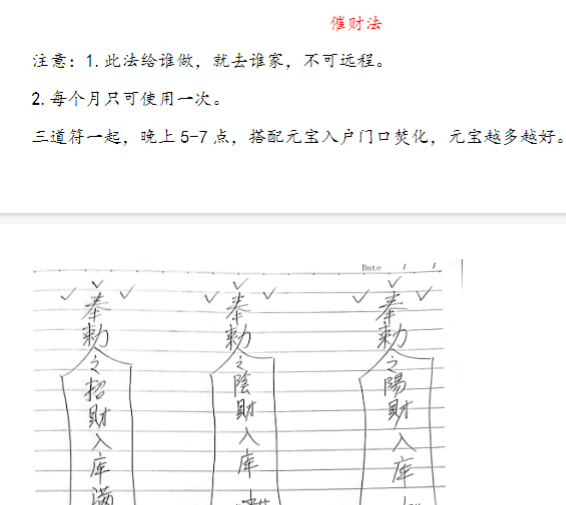 催财法
注意：1.此法给谁做，就去谁家，不可远程。
2.每个月只可使用一次。
三道符一起，晚上5-7点，搭配元宝入户门口焚化，元宝越多越好。
Date / /
奉勅令之招財入库满
奉勅令之陰財入库
奉勅令之陽財入库